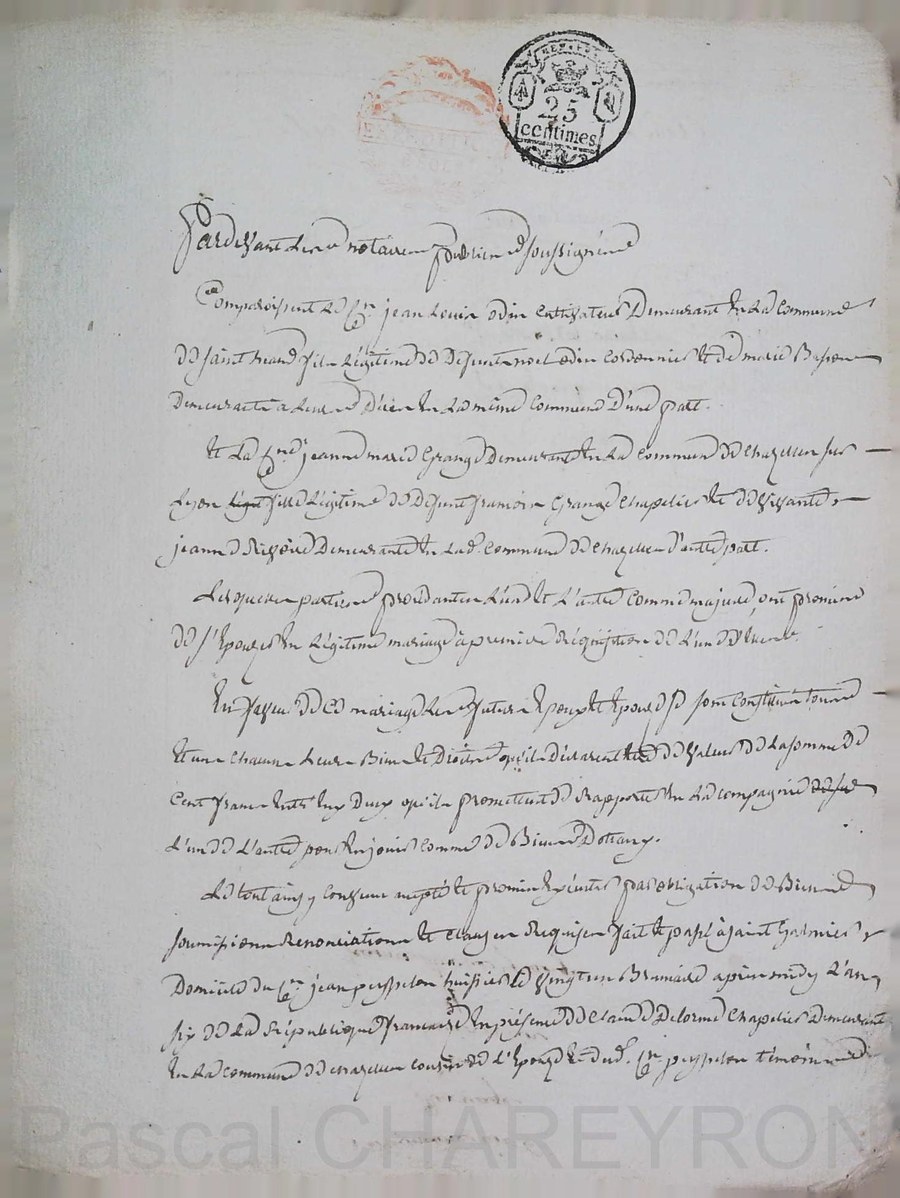 REP. FRA.
25
centimes
Pardevant Les notaires publics soussignés
Comparoissent Le Cen jean Louis odin Cultivateur Demeurant En La Commune
de saint fils Légitime de Défunt noel odin Cordonnier Et de marie
Demeurante a En La même Commune D'une part.
Et La Cene jeanne marie Grange Demeurant En La Commune de Chazelles sur
Lyon fille Légitime de Défunt francois Grange Chapelier Et de vivante
jeanne Demeurante En Lad. Commune de Chazelles d'autre part.
Lesquelles parties procédantes L'une Et L'autre Comme majeure, ont promis
de s'Epouser En Légitime mariage à premiere Réquisition de L'un D'Eux
En faveur de Ce mariage Les futurs Epoux Et Epouse se sont Constitués tous
Et un Chacun Leurs Biens Et Droits qu'ils Déclarent de valeur de La somme de
Cent francs Entre Eux Deux qu'ils promettent de Rapporter En La Compagnie
L'un de L'autre pour En jouir Comme de Biens Dotaux.
Le tout ainsy Convenu accepté Et promis Exécuter par obligation de Biens
soumissions Renonciations Et Clauses Requises fait Et passé à saint Galmier
Domicile du Cen jean peysselon huissier Le vingt un Brumaire après midy L'an
six de La République francaise En présence de Claude Delorme Chapelier Demeurant
En La Commune de Chazelles Cousin de L'Epouse Et dud. Cen peysselon témoins
Pascal CHAREYRON